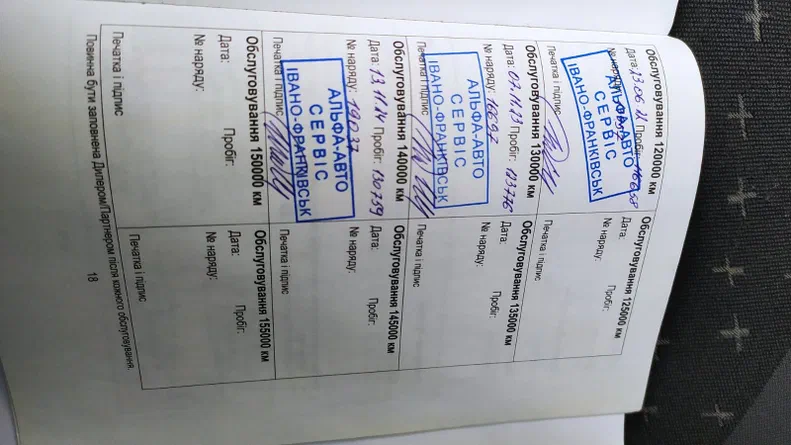 Обслуговування 120000 км
Дата: 23.06.22 Пробіг: 116058
№ наряду:
Печатка і підпис
АЛЬФА-АВТО
СЕРВІС
ІВАНО-ФРАНКІВСЬК
Обслуговування 125000 км
Дата: Пробіг:
№ наряду:
Печатка і підпис
Обслуговування 130000 км
Дата: 07.11.23 Пробіг: 123776
№ наряду: 16697
Печатка і підпис
АЛЬФА-АВТО
СЕРВІС
ІВАНО-ФРАНКІВСЬК
Обслуговування 135000 км
Дата: Пробіг:
№ наряду:
Печатка і підпис
Обслуговування 140000 км
Дата: 13.11.24 Пробіг: 130739
№ наряду: 19037
Печатка і підпис
АЛЬФА-АВТО
СЕРВІС
ІВАНО-ФРАНКІВСЬК
Обслуговування 145000 км
Дата: Пробіг:
№ наряду:
Печатка і підпис
Обслуговування 150000 км
Дата: Пробіг:
№ наряду:
Печатка і підпис
Обслуговування 155000 км
Дата: Пробіг:
№ наряду:
Печатка і підпис
Повинна бути заповнена Дилером/Партнером після кожного обслуговування.
18